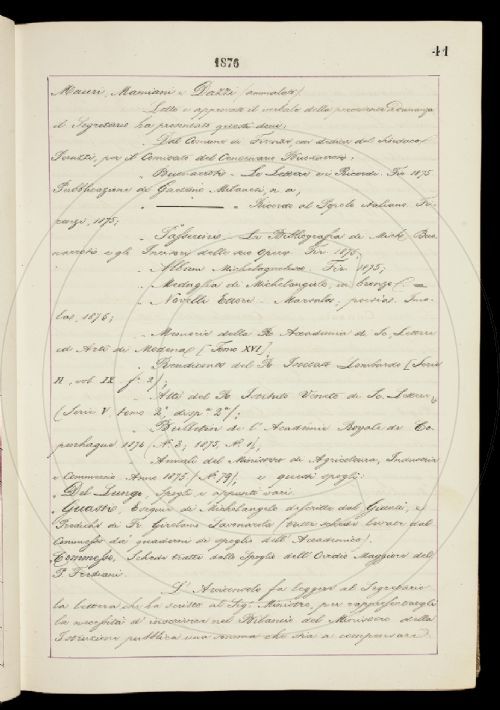 1876
41
Mauri, Mamiani e Dazzi (ammalato).
Letto e approvato il verbale della precedente Adunanza
il Segretario ha presentato questi doni:
Dal Comune di Firenze, con dedica del Sindaco
Peruzzi, per il Comitato del Centenario
Buonarroti - Le Lettere ed i Ricordi. Fir. 1875
Pubblicazione di Gaetano Milanesi
Ricordo al Popolo italiano. Fi-
renze, 1875;
Passerini. La Bibliografia di Mich. Buo-
narroti e gli Incisori delle sue Opere. Fir. 1875;
Album Michelangiolesco Fir. 1875;
Medaglia di Michelangelo in bronzo;
Novelli Ettore - Marsala: poesia. Imo-
la, 1876;
Memorie della R. Accademia di Sc. Lettere
ed Arti di Modena [Tomo XVI];
Rendiconti del R. Istituto Lombardo [Serie
II, vol. IX, f. 2];
Atti del R. Istituto Veneto di Sc. Lettere
(Serie V, tomo 2°, disp. 2ª);
Bulletin de l'Académie Royale de Co-
penhague 1876 (N. 2; 1875, N. 1);
Annali del Ministero di Agricoltura, Industria
e Commercio. Anno 1875 (N. 79), e questi spogli:
Del Lungo, Spogli e appunti vari
Guasti, Esequie di Michelangelo descritte dal Giunti, e
Prediche di Fr. Girolamo Savonarola (tratte schede levate dal
Commesso da' quaderni di spoglio dell'Accademico).
Commesso, Schede tratte dallo Spoglio dell'Ovidio Maggiore del
P. Frediani.
L'Arciconsolo fa leggere al Segretario
la lettera che ha scritto al Sig. Ministro, per rappresentargli
la necessità d'inscrivere nel Bilancio del Ministero della
Istruzione pubblica una somma che stia a compensare